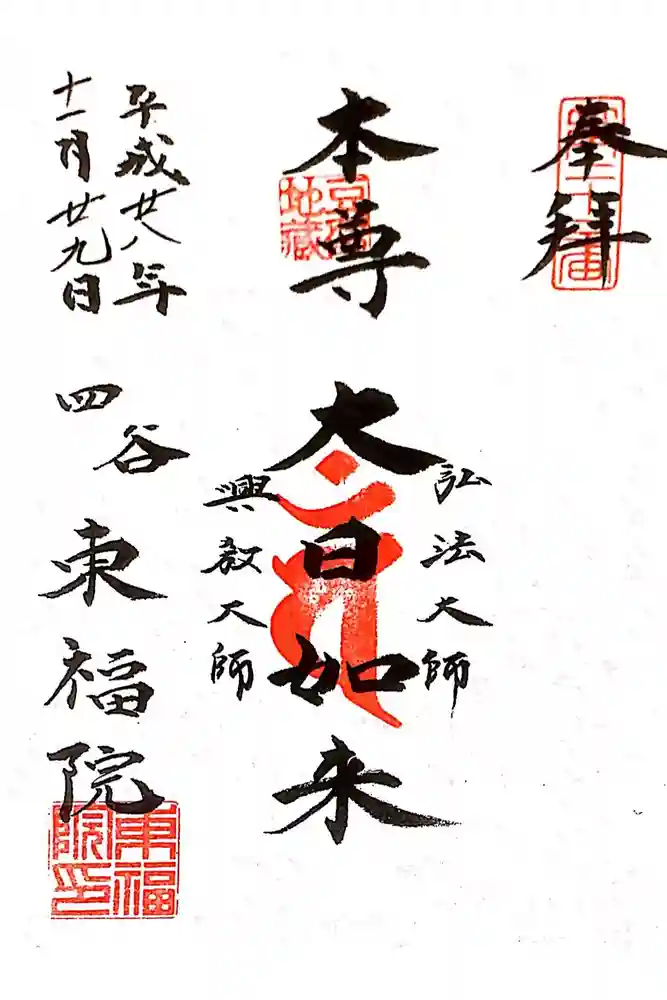 奉拝
本尊
豆腐
地蔵
弘法大師
大日如来
興教大師
平成廿八年
十一月廿九日
四谷
東福院
東福
院印